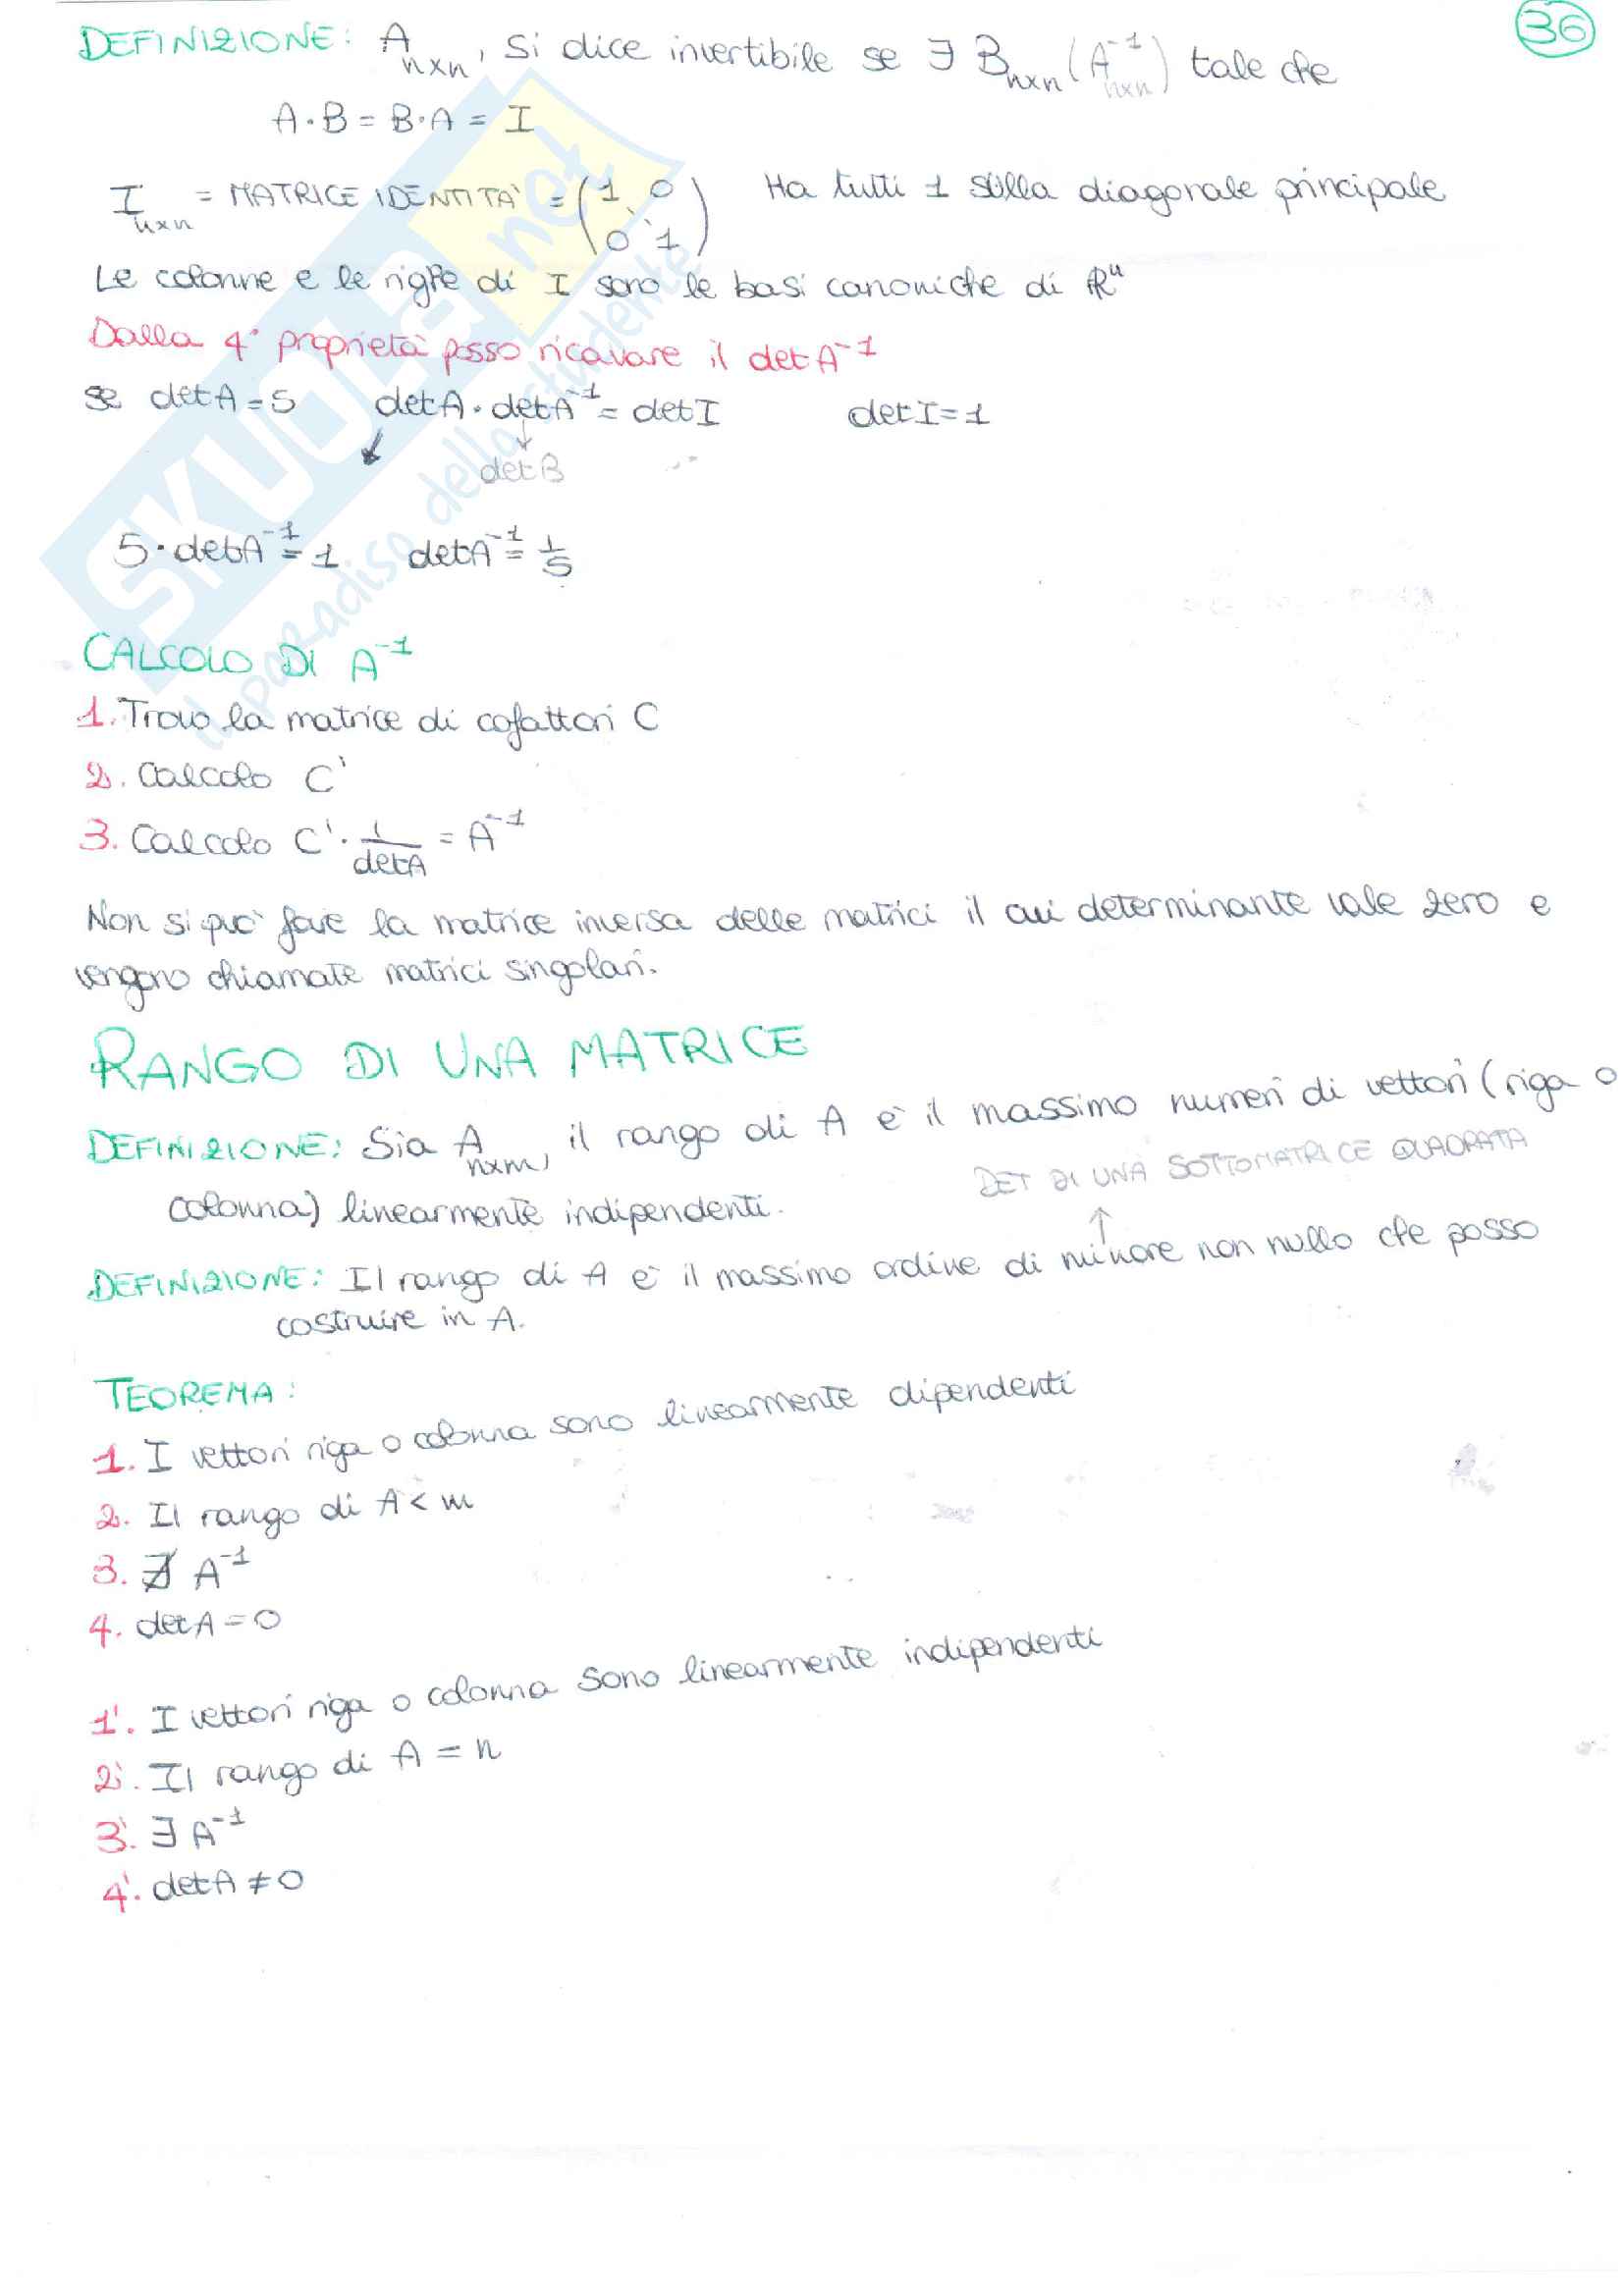 36
DEFINIZIONE: A n×n, Si dice invertibile se ∃ B n×n (A⁻¹ n×n) tale che
A·B = B·A = I
I n×n = MATRICE IDENTITA' = (1 0 Ha tutti 1 sulla diagonale principale
0 1)
Le colonne e le righe di I sono le basi canoniche di ℝⁿ
Dalla 4° proprietà posso ricavare il det A⁻¹
se detA = 5 detA · detA⁻¹ = det I det I = 1
↙ ↓
det B
5 · detA⁻¹ = 1 detA⁻¹ = 1/5
CALCOLO DI A⁻¹
1. Trovo la matrice di cofattori C
2. Calcolo C'
3. Calcolo C' · 1/detA = A⁻¹
Non si può fare la matrice inversa delle matrici il cui determinante vale zero e
vengono chiamate matrici singolari.
RANGO DI UNA MATRICE
DEFINIZIONE: Sia A n×m, il rango di A è il massimo numeri di vettori (riga o
colonna) linearmente indipendenti.
DET DI UNA SOTTOMATRICE QUADRATA
↑
DEFINIZIONE: Il rango di A è il massimo ordine di minore non nullo che posso
costruire in A.
TEOREMA:
1. I vettori riga o colonna sono linearmente dipendenti
2. Il rango di A < m
3. ∄ A⁻¹
4. detA = 0
1'. I vettori riga o colonna sono linearmente indipendenti
2'. Il rango di A = n
3'. ∃ A⁻¹
4'. detA ≠ 0
SKUOLA.net
il paradiso dello studente